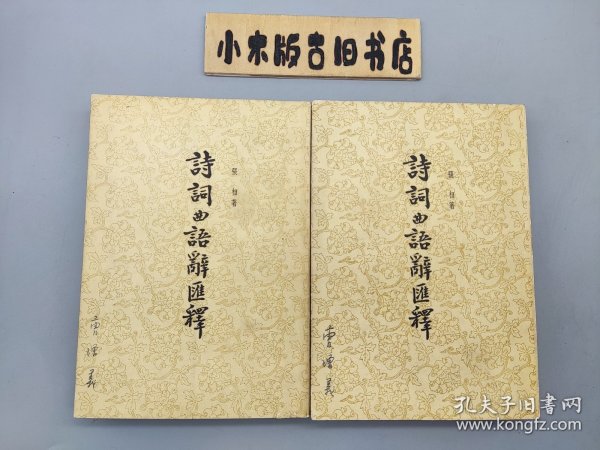 小木版古旧书店
詩詞曲語辭匯釋
張相著
詩詞曲語辭匯釋
張相著
孔夫子旧书网
www.kongfz.com